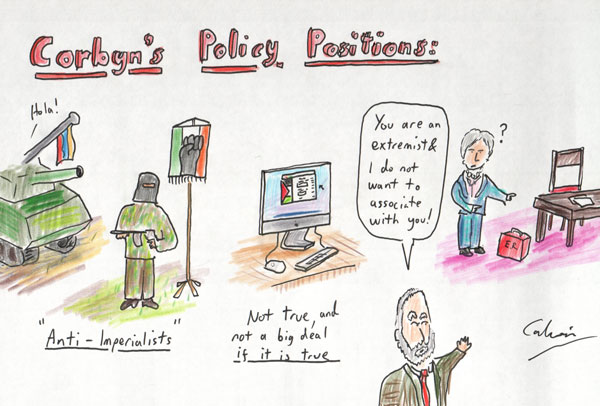 Corbyn's Policy Positions:
Hola!
"Anti-Imperialists"
Not true, and
not a big deal
if it is true
You are an
extremist &
I do not
want to
associate
with you!
?
E.R.